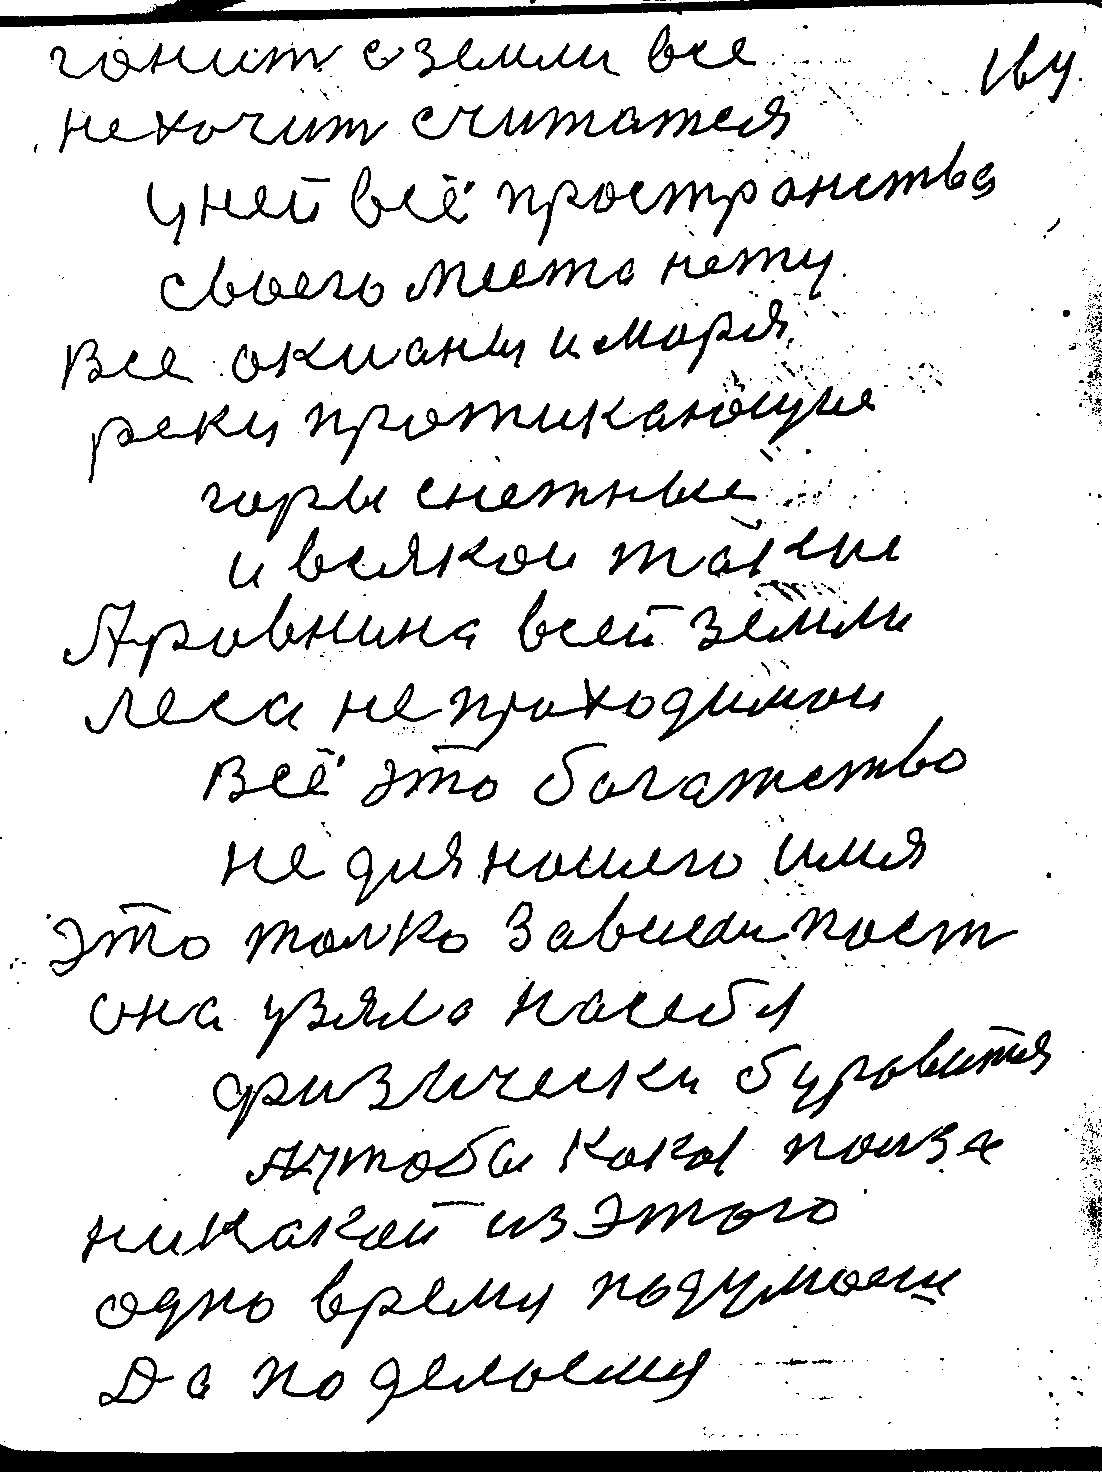 гонит с земли все
не хочит считатся
у ней всё пространства
своего места нету
Все окианы и моря
реки протикающие
горы снежные
и всякои такие
А ровнина всей земли
леса не проходимои
Всё это богатство
не для нашего имя
это толко зависи пост
она узяла на себя
физически буровится
А чтоба кокая полза
никакой из этого
одно время подумаеш
Да поделаемся